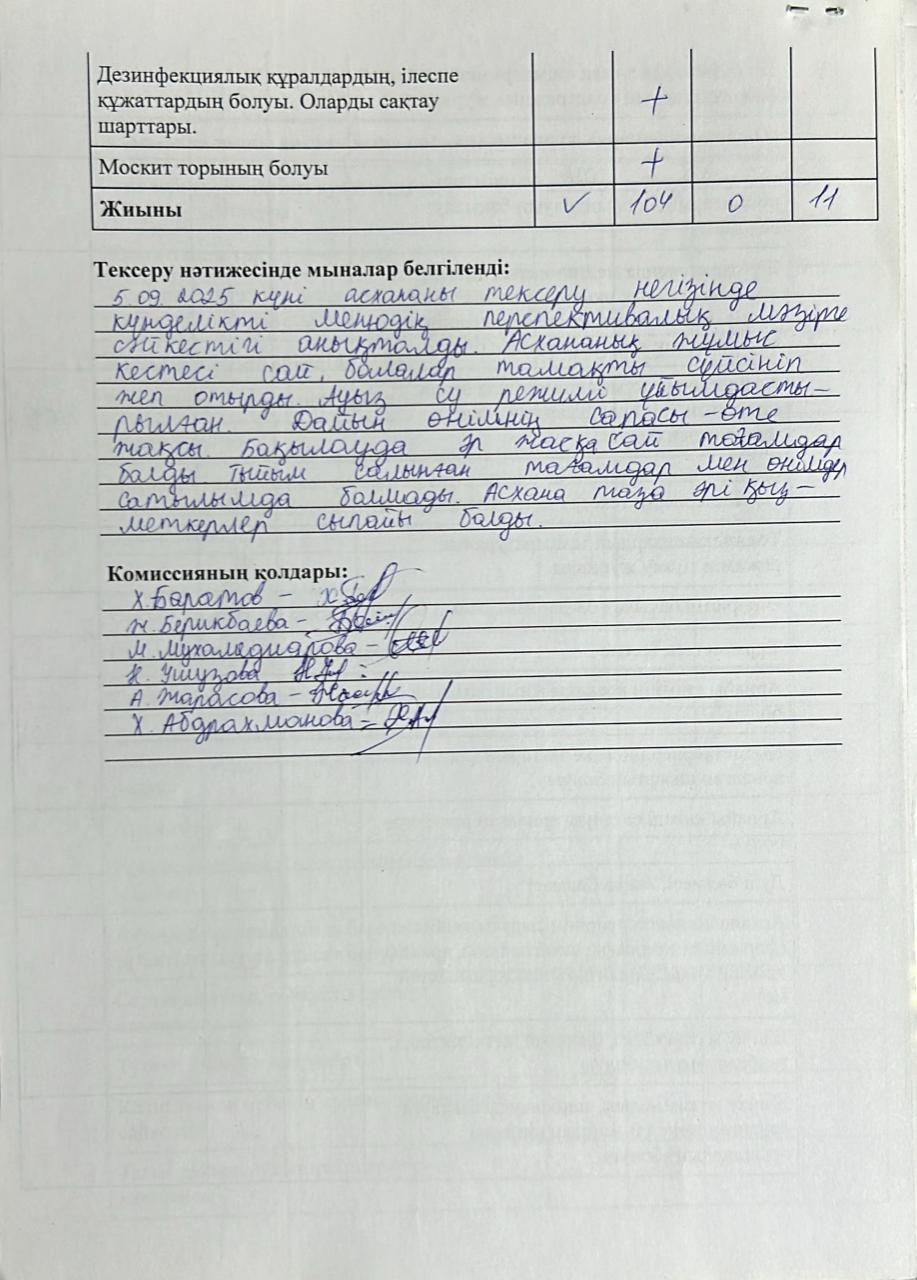 Дезинфекциялық құралдардың, ілеспе
құжаттардың болуы. Оларды сақтау
шарттары. +
Москит торының болуы +
Жиыны ✓ 104 0 11
Тексеру нәтижесінде мыналар белгіленді:
5.09.2025 күні асхананы тексеру негізінде
күнделікті менюдің перспективалық мәзірге
сәйкестігі анықталды. Асхананың жұмыс
кестесі сай, балалар тамақты сүйсініп
жеп отырды. Ауыз су режимі ұйымдасты-
рылған. Дайын өнімнің сапасы - өте
жақсы. Бақылауда әр жасқа сай тағамдар
балды тыйым салынған тағамдар мен өнімдер
сатылымда болмады. Асхана таза әрі қыз-
меткерлер сыпайы болды.
Комиссияның қолдары:
Х.Баратов -
Н.Берикбаева -
М.Мухамедиарова -
А.Жарасова -
Х.Абдрахманова -